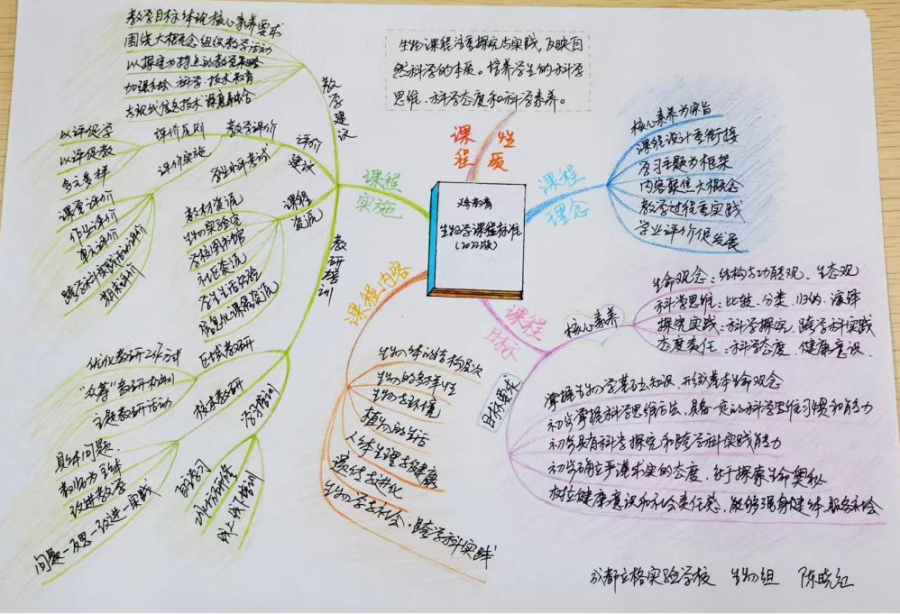 生物课程注重探究与实践，反映自
然科学的本质。培养学生的科学
思维、科学态度和科学素养。
课程
性质
义务教育
生物学课程标准
(2022版)
课程
理念
核心素养为宗旨
课程设计重衔接
学习主题为框架
内容聚焦大概念
教学过程重实践
学业评价促发展
课程
目标
核心素养
生命观念：结构与功能观、生态观
科学思维：比较、分类、归纳、演绎
探究实践：科学探究、跨学科实践
态度责任：科学态度、健康意识、
目标要求
掌握生物学基础知识，形成基本生命观念
初步掌握科学思维方法，具备一定的科学思维习惯和能力
初步具有科学探究和跨学科实践能力
初步确立严谨求实的态度，乐于探索生命奥秘
树立健康意识和社会责任感，能够强身健体、服务社会
课程内容
生物体的结构层次
生物的多样性
生物与环境
植物的生活
人体生理与健康
遗传与进化
生物学与社会·跨学科实践
课程
实施
教学建议
教学目标体现核心素养要求
围绕大概念组织教学活动
以探究为特点的教学策略
加强科学、技术
信息技术
评价
建议
教学评价
评价原则
以评促学
以评促教
多元多样
评价实施
课堂评价
作业评价
单元评价
跨学科实践活动评价
期末评价
学业水平考试
课程
资源
教材资源
生物实验室
学校图书馆
社区资源
学生生活经验
信息化课程资源
教研培训
区域教研
优化教研工作方式
教研机制
主题教研活动
校本教研
具体问题
教师为主体
改进教学
问题—反思—改进—实践
学习培训
自主学习
线上线下培训
成都立格实验学校 生物组 陈晓红